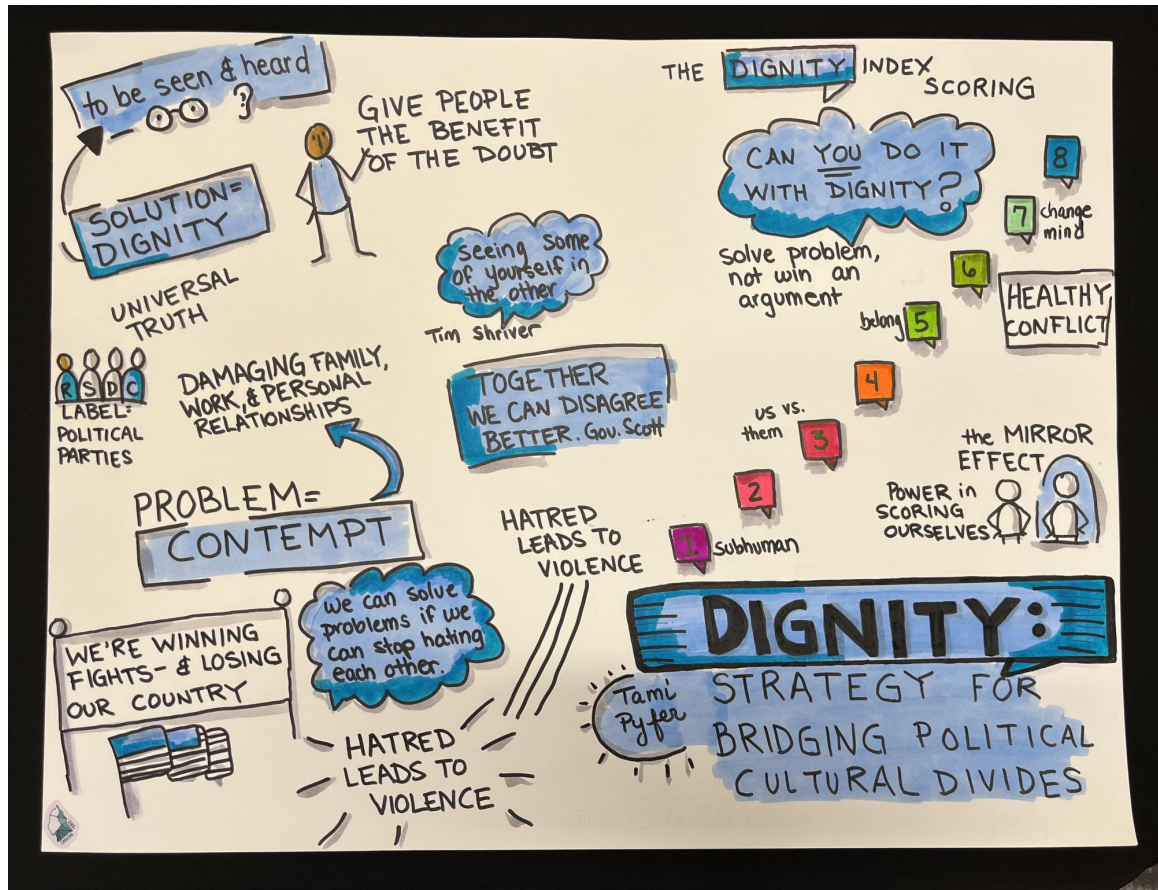 to be seen & heard
?
SOLUTION=
DIGNITY
GIVE PEOPLE
THE BENEFIT
OF THE DOUBT
UNIVERSAL
TRUTH
R S D C
LABEL:
POLITICAL
PARTIES
DAMAGING FAMILY,
WORK, & PERSONAL
RELATIONSHIPS
PROBLEM=
CONTEMPT
WE'RE WINNING
FIGHTS- & LOSING
OUR COUNTRY
we can solve
problems if we
can stop hating
each other.
HATRED
LEADS TO
VIOLENCE
HATRED
LEADS TO
VIOLENCE
seeing some
of yourself in
the other
Tim Shriver
TOGETHER
WE CAN DISAGREE
BETTER. Gov. Scott
THE DIGNITY INDEX
SCORING
CAN YOU DO IT
WITH DIGNITY?
solve problem,
not win an
argument
8
7 change
mind
6
HEALTHY
CONFLICT
belong 5
4
us vs.
them 3
2
1 subhuman
the MIRROR
EFFECT
POWER in
SCORING
OURSELVES
DIGNITY:
Tami
Pyfer
STRATEGY FOR
BRIDGING POLITICAL
CULTURAL DIVIDES